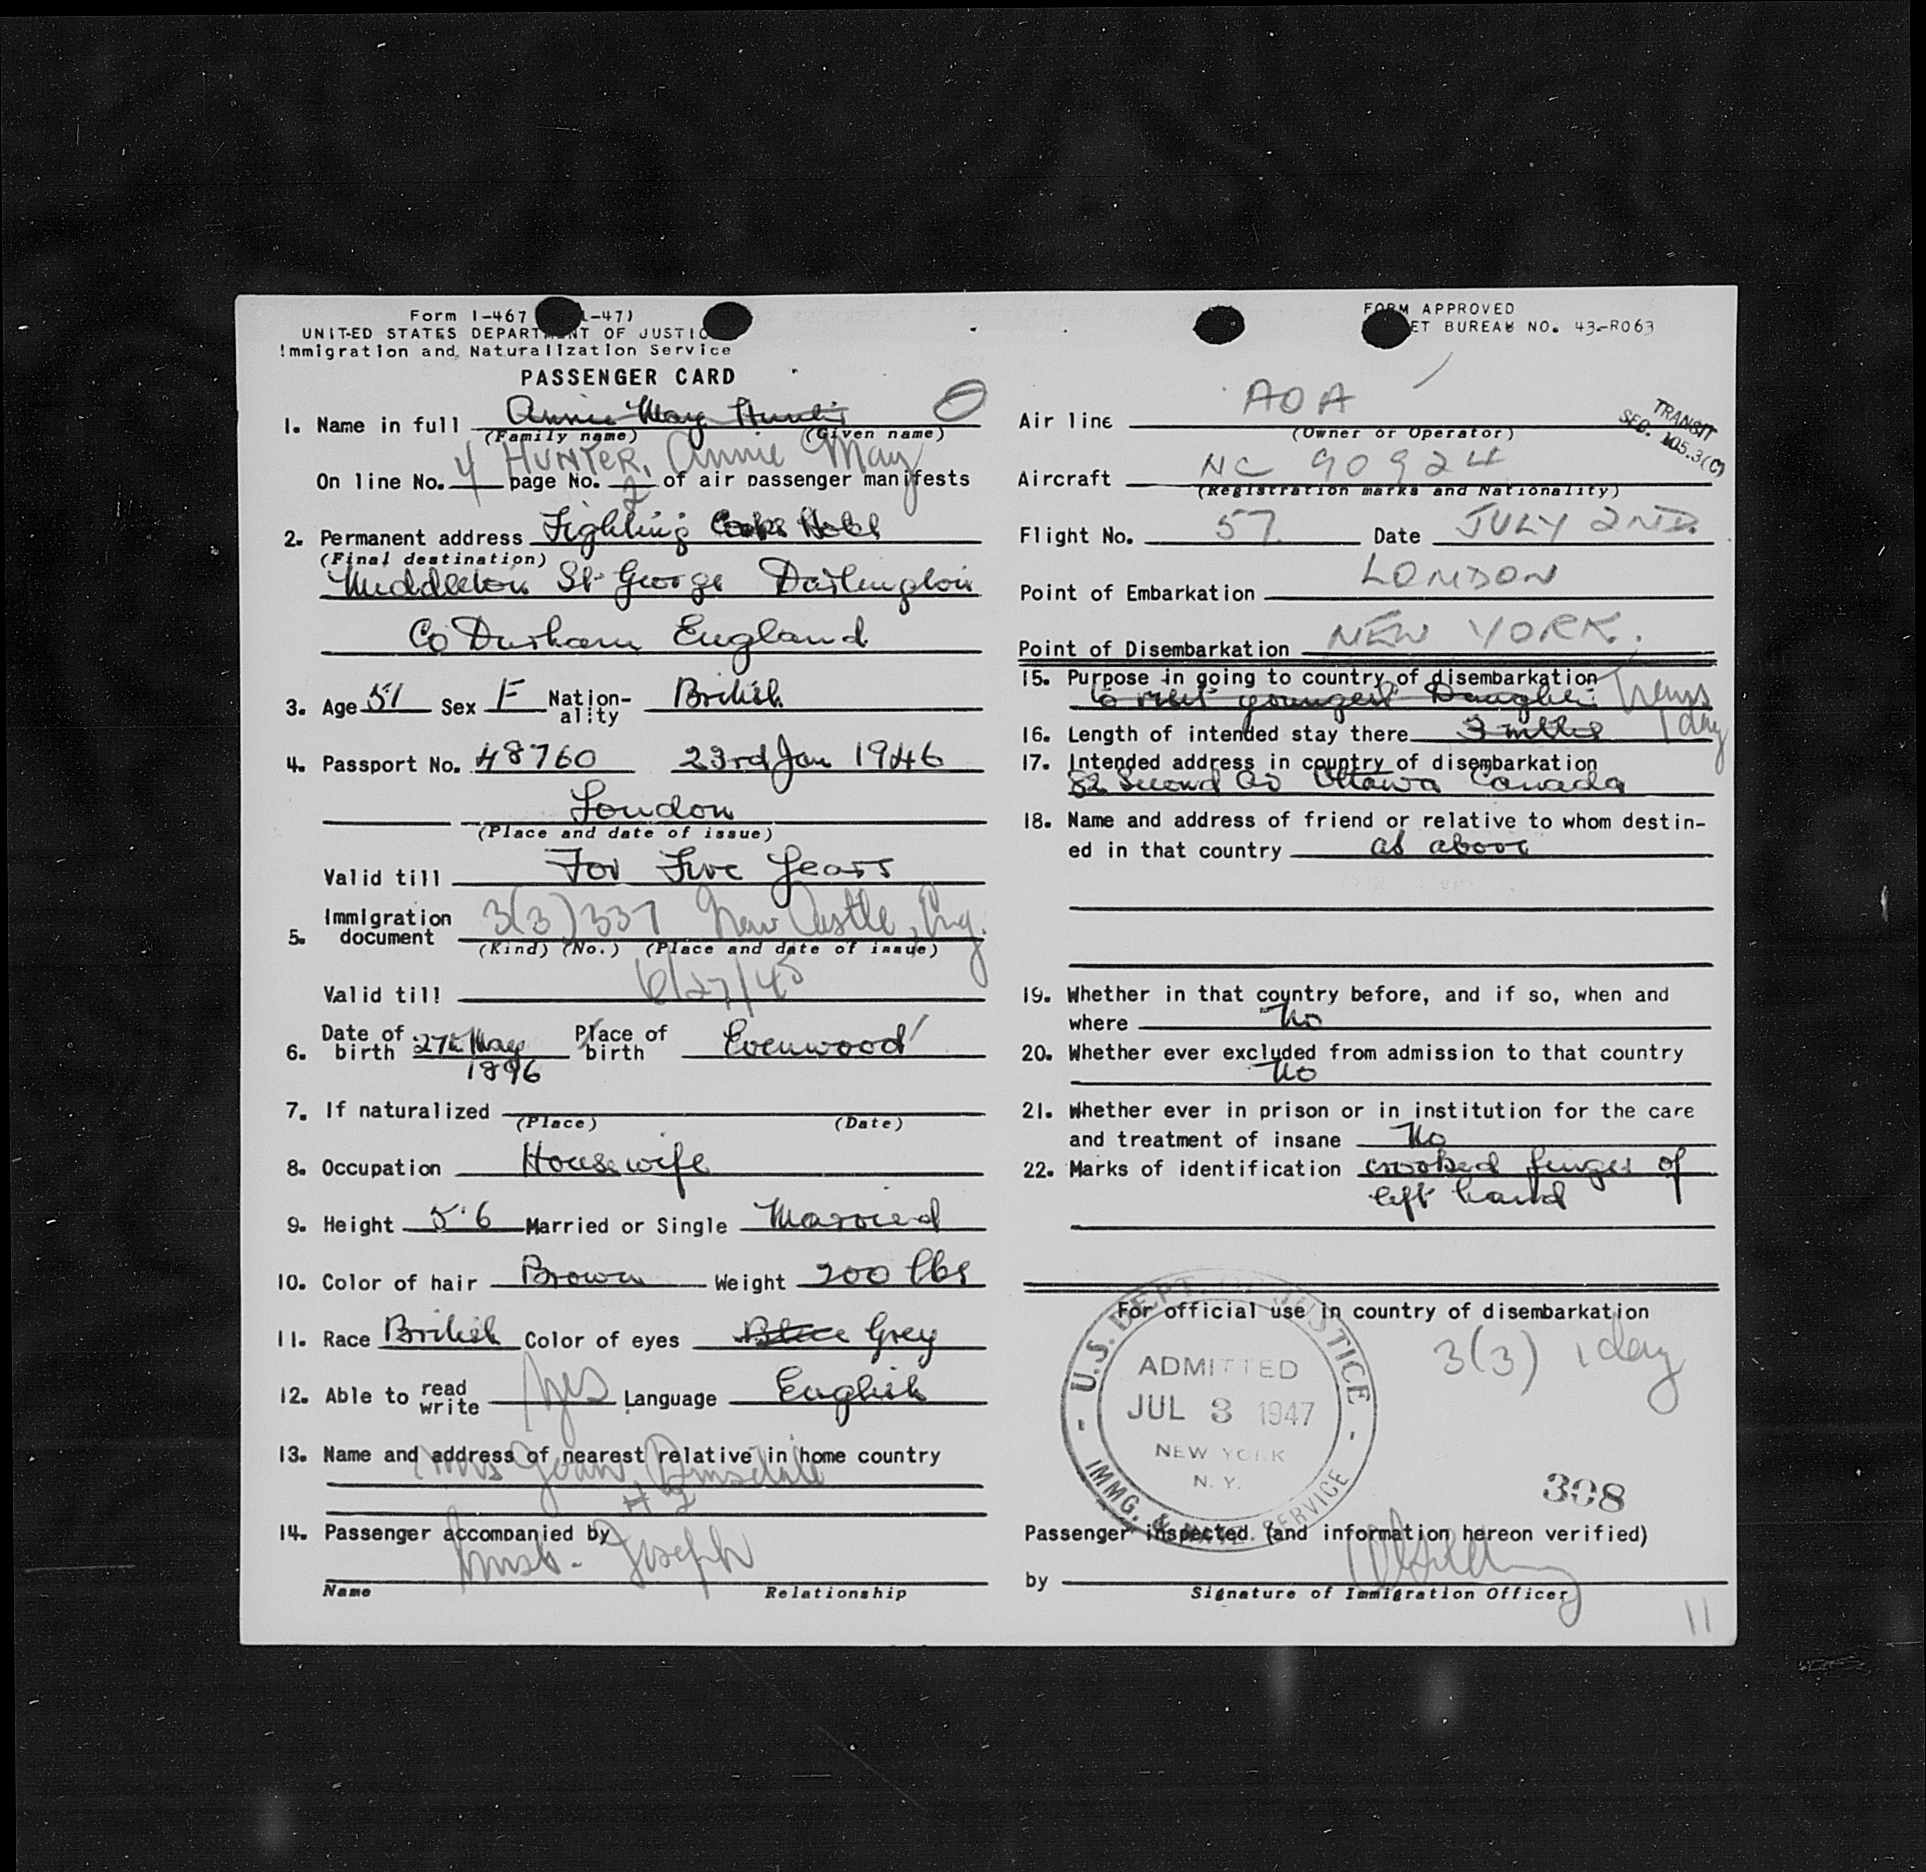 Form I-467 -47)
UNITED STATES DEPARTMENT OF JUSTIC
Immigration and Naturalization Service
PASSENGER CARD
1. Name in full Annie May Hunter
(Family name) (Given name)
HUNTER, Annie May
On line No. 4 page No. 2 of air passenger manifests
2. Permanent address Fighting Cocks Hotel
(Final destination)
Middleton St George Darlington
Co Durham England
3. Age 51 Sex F Nation-ality British
4. Passport No. 48760 23rd Jan 1946
London
(Place and date of issue)
Valid till For Five Years
5. Immigration document 3(3) 337 New Castle, Eng.
(Kind) (No.) (Place and date of issue)
Valid till 6/27/45
6. Date of birth 27th May 1896 Place of birth Evenwood
7. If naturalized
(Place) (Date)
8. Occupation Housewife
9. Height 5'6 Married or Single Married
10. Color of hair Brown Weight 200 lbs
11. Race British Color of eyes Blue Grey
12. Able to read write yes Language English
13. Name and address of nearest relative in home country
Joan
# 2
14. Passenger accompanied by
Joseph
Name Relationship
FORM APPROVED
ET BUREAU NO. 43-R063
TRANSIT
SEC. 105.3(C)
Air line AOA
(Owner or Operator)
Aircraft NC 90924
(Registration marks and Nationality)
Flight No. 57 Date JULY 2ND.
Point of Embarkation LONDON
Point of Disembarkation NEW YORK.
15. Purpose in going to country of disembarkation
to visit youngest Daughter Trans
16. Length of intended stay there 3 mths 1 day
17. Intended address in country of disembarkation
82 Second Av Ottawa Canada
18. Name and address of friend or relative to whom destin-
ed in that country as above
19. Whether in that country before, and if so, when and
where No
20. Whether ever excluded from admission to that country
No
21. Whether ever in prison or in institution for the care
and treatment of insane No
22. Marks of identification crooked finger of
left hand
For official use in country of disembarkation
3(3) 1 day
U.S. DEPT. OF JUSTICE
ADMITTED
JUL 3 1947
NEW YORK
N. Y.
IMMG. & NATZ. SERVICE
308
Passenger inspected (and information hereon verified)
by
Signature of Immigration Officer
11